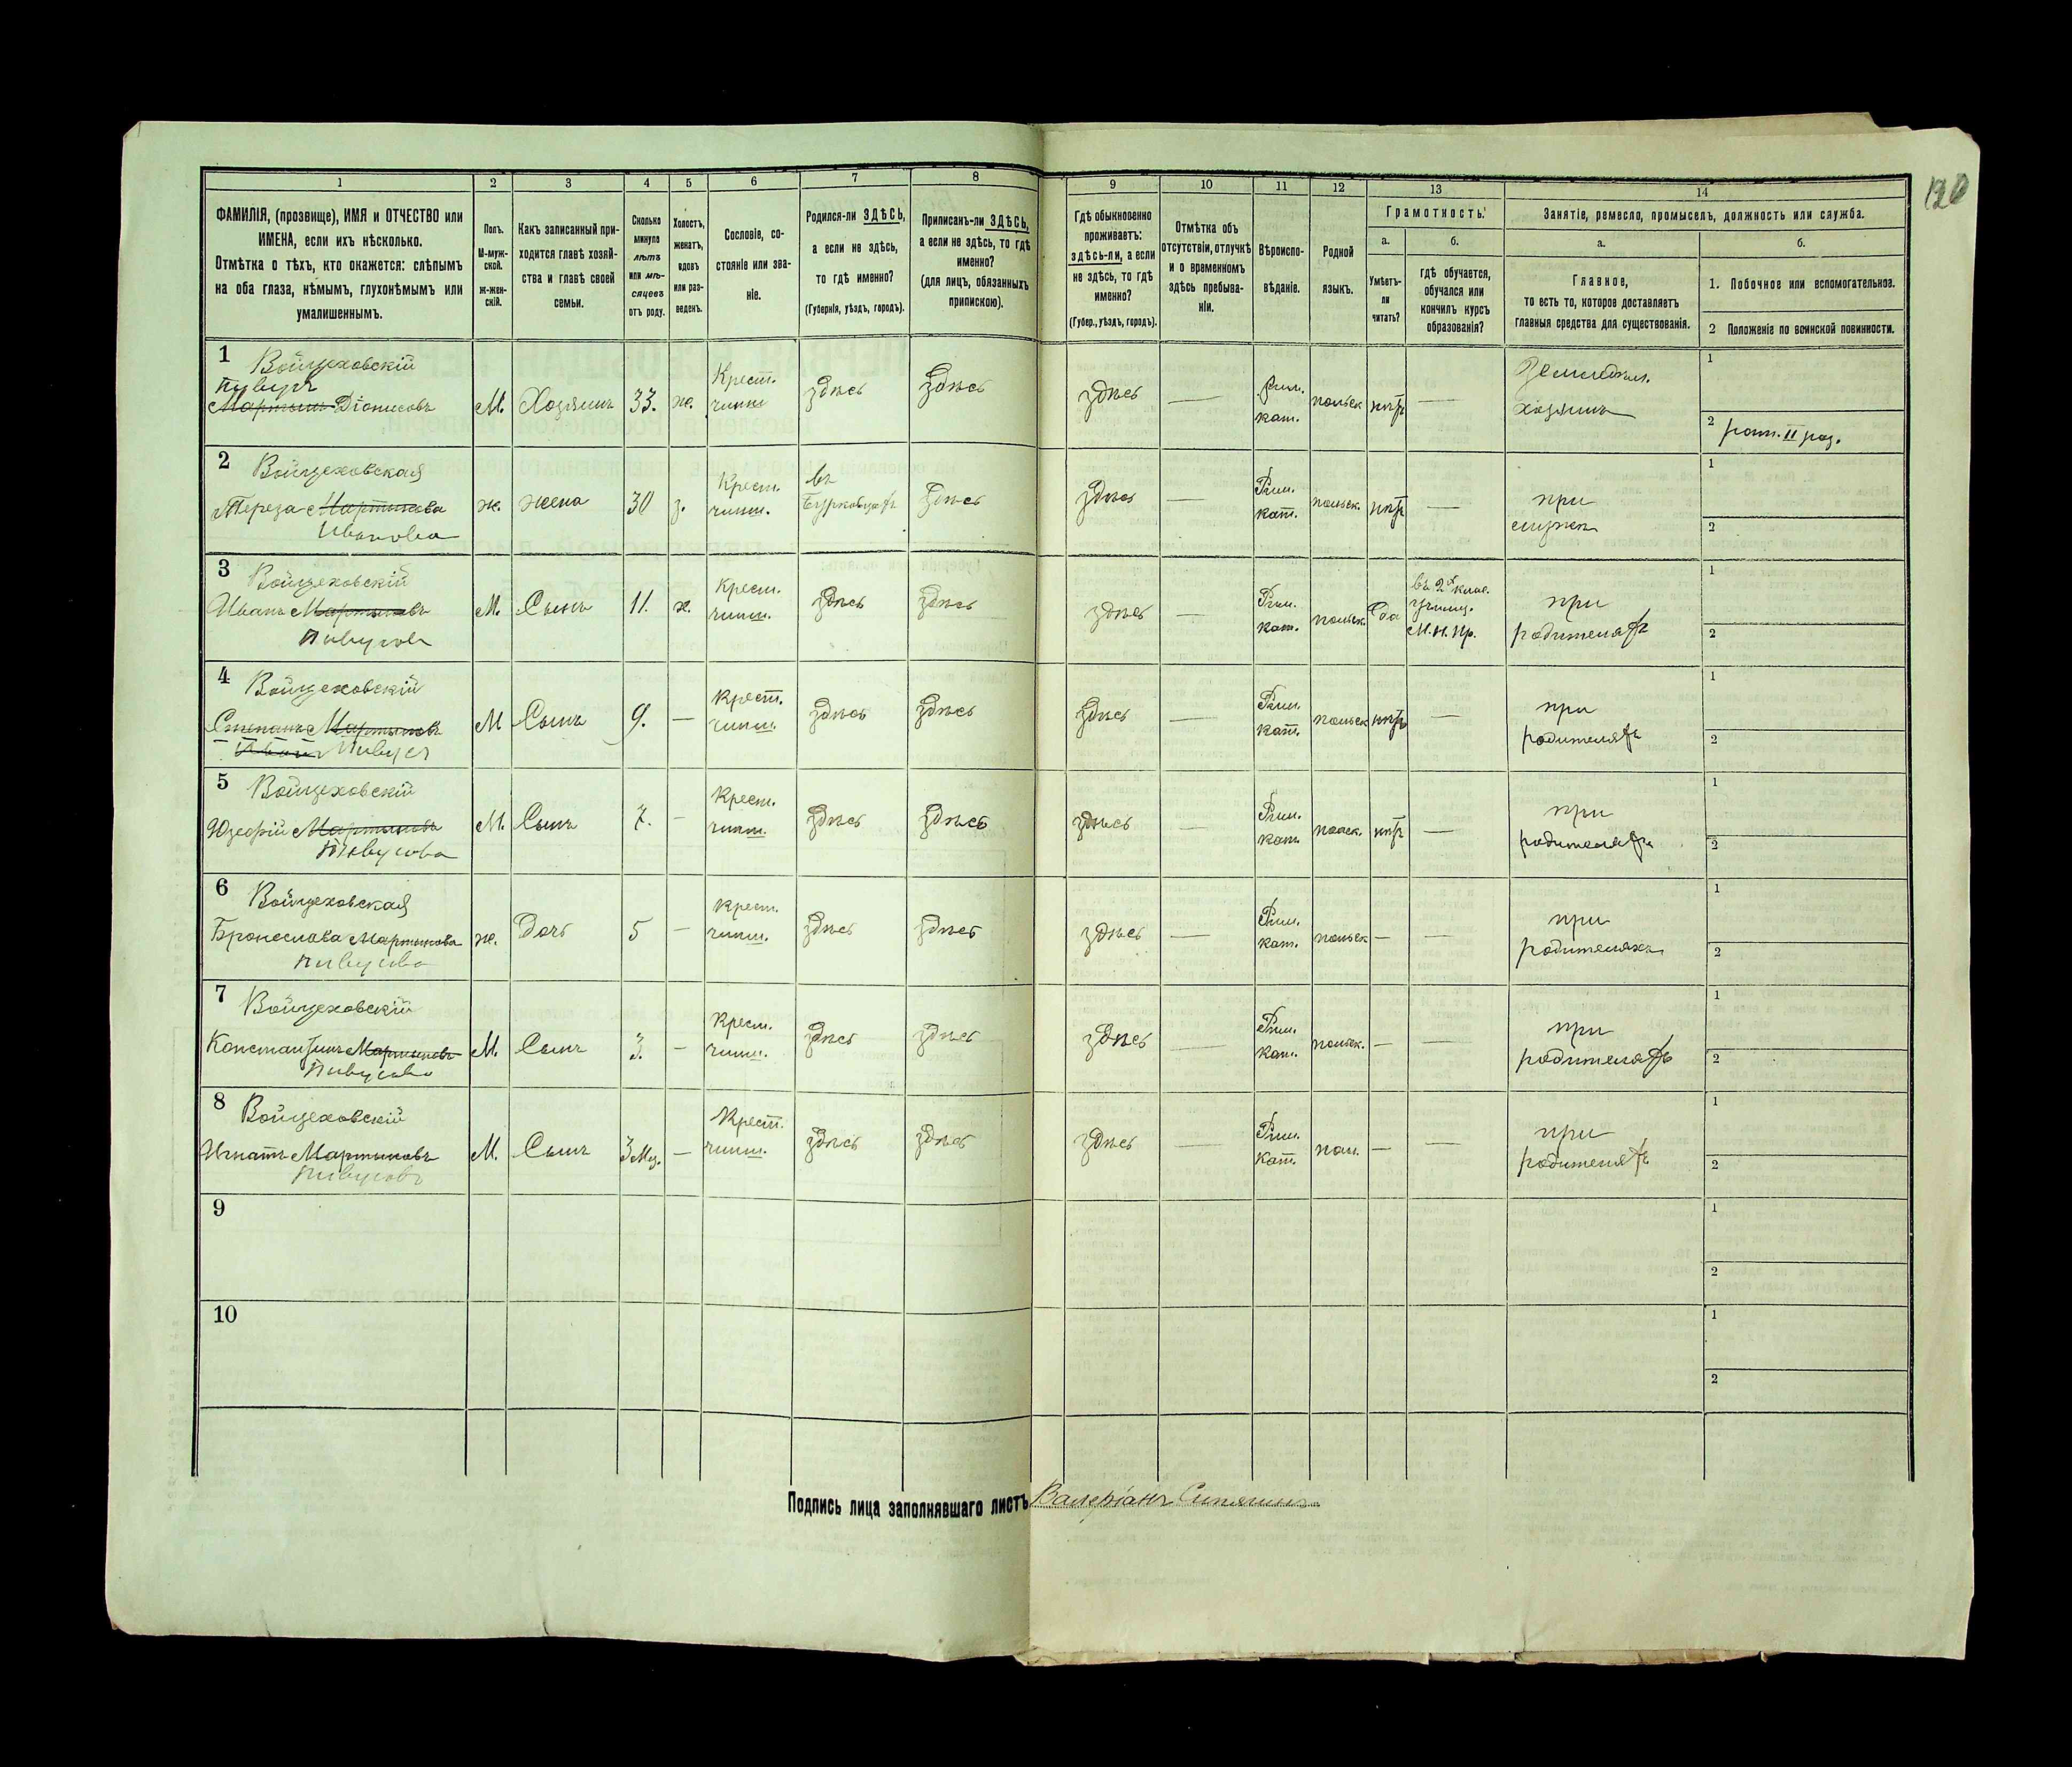 120
1 2 3 4 5 6 7 8 9 10 11 12 13 14
ФАМИЛІЯ, (прозвище), ИМЯ и ОТЧЕСТВО или
ИМЕНА, если ихъ нѣсколько.
Отмѣтка о тѣхъ, кто окажется: слѣпымъ
на оба глаза, нѣмымъ, глухонѣмымъ или
умалишеннымъ.
Полъ.
М-муж-
ской.
ж-жен-
скій.
Какъ записанный при-
ходится главѣ хозяй-
ства и главѣ своей
семьи.
Сколько
минуло
лѣтъ
или мѣ-
сяцевъ
отъ роду.
Холостъ,
женатъ,
вдовъ
или раз-
веденъ.
Сословіе, со-
стояніе или зва-
ніе.
Родился-ли ЗДѢСЬ,
а если не здѣсь,
то гдѣ именно?
(Губернія, уѣздъ, городъ).
Приписанъ-ли ЗДѢСЬ,
а если не здѣсь, то гдѣ
именно?
(для лицъ, обязанныхъ
припискою).
Гдѣ обыкновенно
проживаетъ:
здѣсь-ли, а если
не здѣсь, то гдѣ
именно?
(Губер., уѣздъ, городъ).
Отмѣтка объ
отсутствіи, отлучкѣ
и о временномъ
здѣсь пребыва-
ніи.
Вѣроиспо-
вѣданіе.
Родной
языкъ.
Грамотность.
а.
Умѣетъ-
ли
читать?
б.
гдѣ обучается,
обучался или
кончилъ курсъ
образованія?
Занятіе, ремесло, промыселъ, должность или служба.
а.
Главное,
то есть то, которое доставляетъ
главныя средства для существованія.
б.
1. Побочное или вспомогательное.
2 Положеніе по воинской повинности.
1
Войцеховскій
Мартынъ Діонисовъ
М. Хозяинъ 33. ж.
Крест.
здѣсь здѣсь здѣсь —
Рим.
кат.
польск нѣтъ —
Земледѣл.
хозяинъ
1
2
рат. II раз.
2
Войцеховская
Тереза Мартынова
Иванова
ж. жена 30 з.
Крест.
въ
здѣсь здѣсь —
Рим.
кат.
польск. нѣтъ —
при
мужѣ
1
2
3
Войцеховскій
Иванъ Мартыновъ
М. Сынъ 11. х.
Крест.
здѣсь здѣсь здѣсь —
Рим.
кат.
польск да
въ 2 клас.
училищ.
М. Н. Пр.
при
родителяхъ
1
2
4
Войцеховскій
Степанъ Мартыновъ
М Сынъ 9. —
Крест.
здѣсь здѣсь здѣсь —
Рим.
кат.
польск нѣтъ —
при
родителяхъ
1
2
5
Войцеховскій
Юзефій Мартыновъ
М. Сынъ 7. —
Крест.
здѣсь здѣсь здѣсь —
Рим.
кат.
польск. нѣтъ —
при
родителяхъ
1
2
6
Войцеховская
Бронеслава Мартынова
ж. Дочь 5 —
Крест.
здѣсь здѣсь здѣсь —
Рим.
кат.
польск — —
при
родителяхъ
1
2
7
Войцеховскій
Константинъ Мартыновъ
М. Сынъ 3. —
Крест.
здѣсь здѣсь здѣсь —
Рим.
кат.
польск. — —
при
родителяхъ
1
2
8
Войцеховскій
Игнатъ Мартыновъ
М. Сынъ 3 мц. —
Крест.
здѣсь здѣсь здѣсь —
Рим.
кат.
пол. — —
при
родителяхъ
1
2
9
1
2
10
1
2
Подпись лица заполнявшаго листъ Валеріанъ